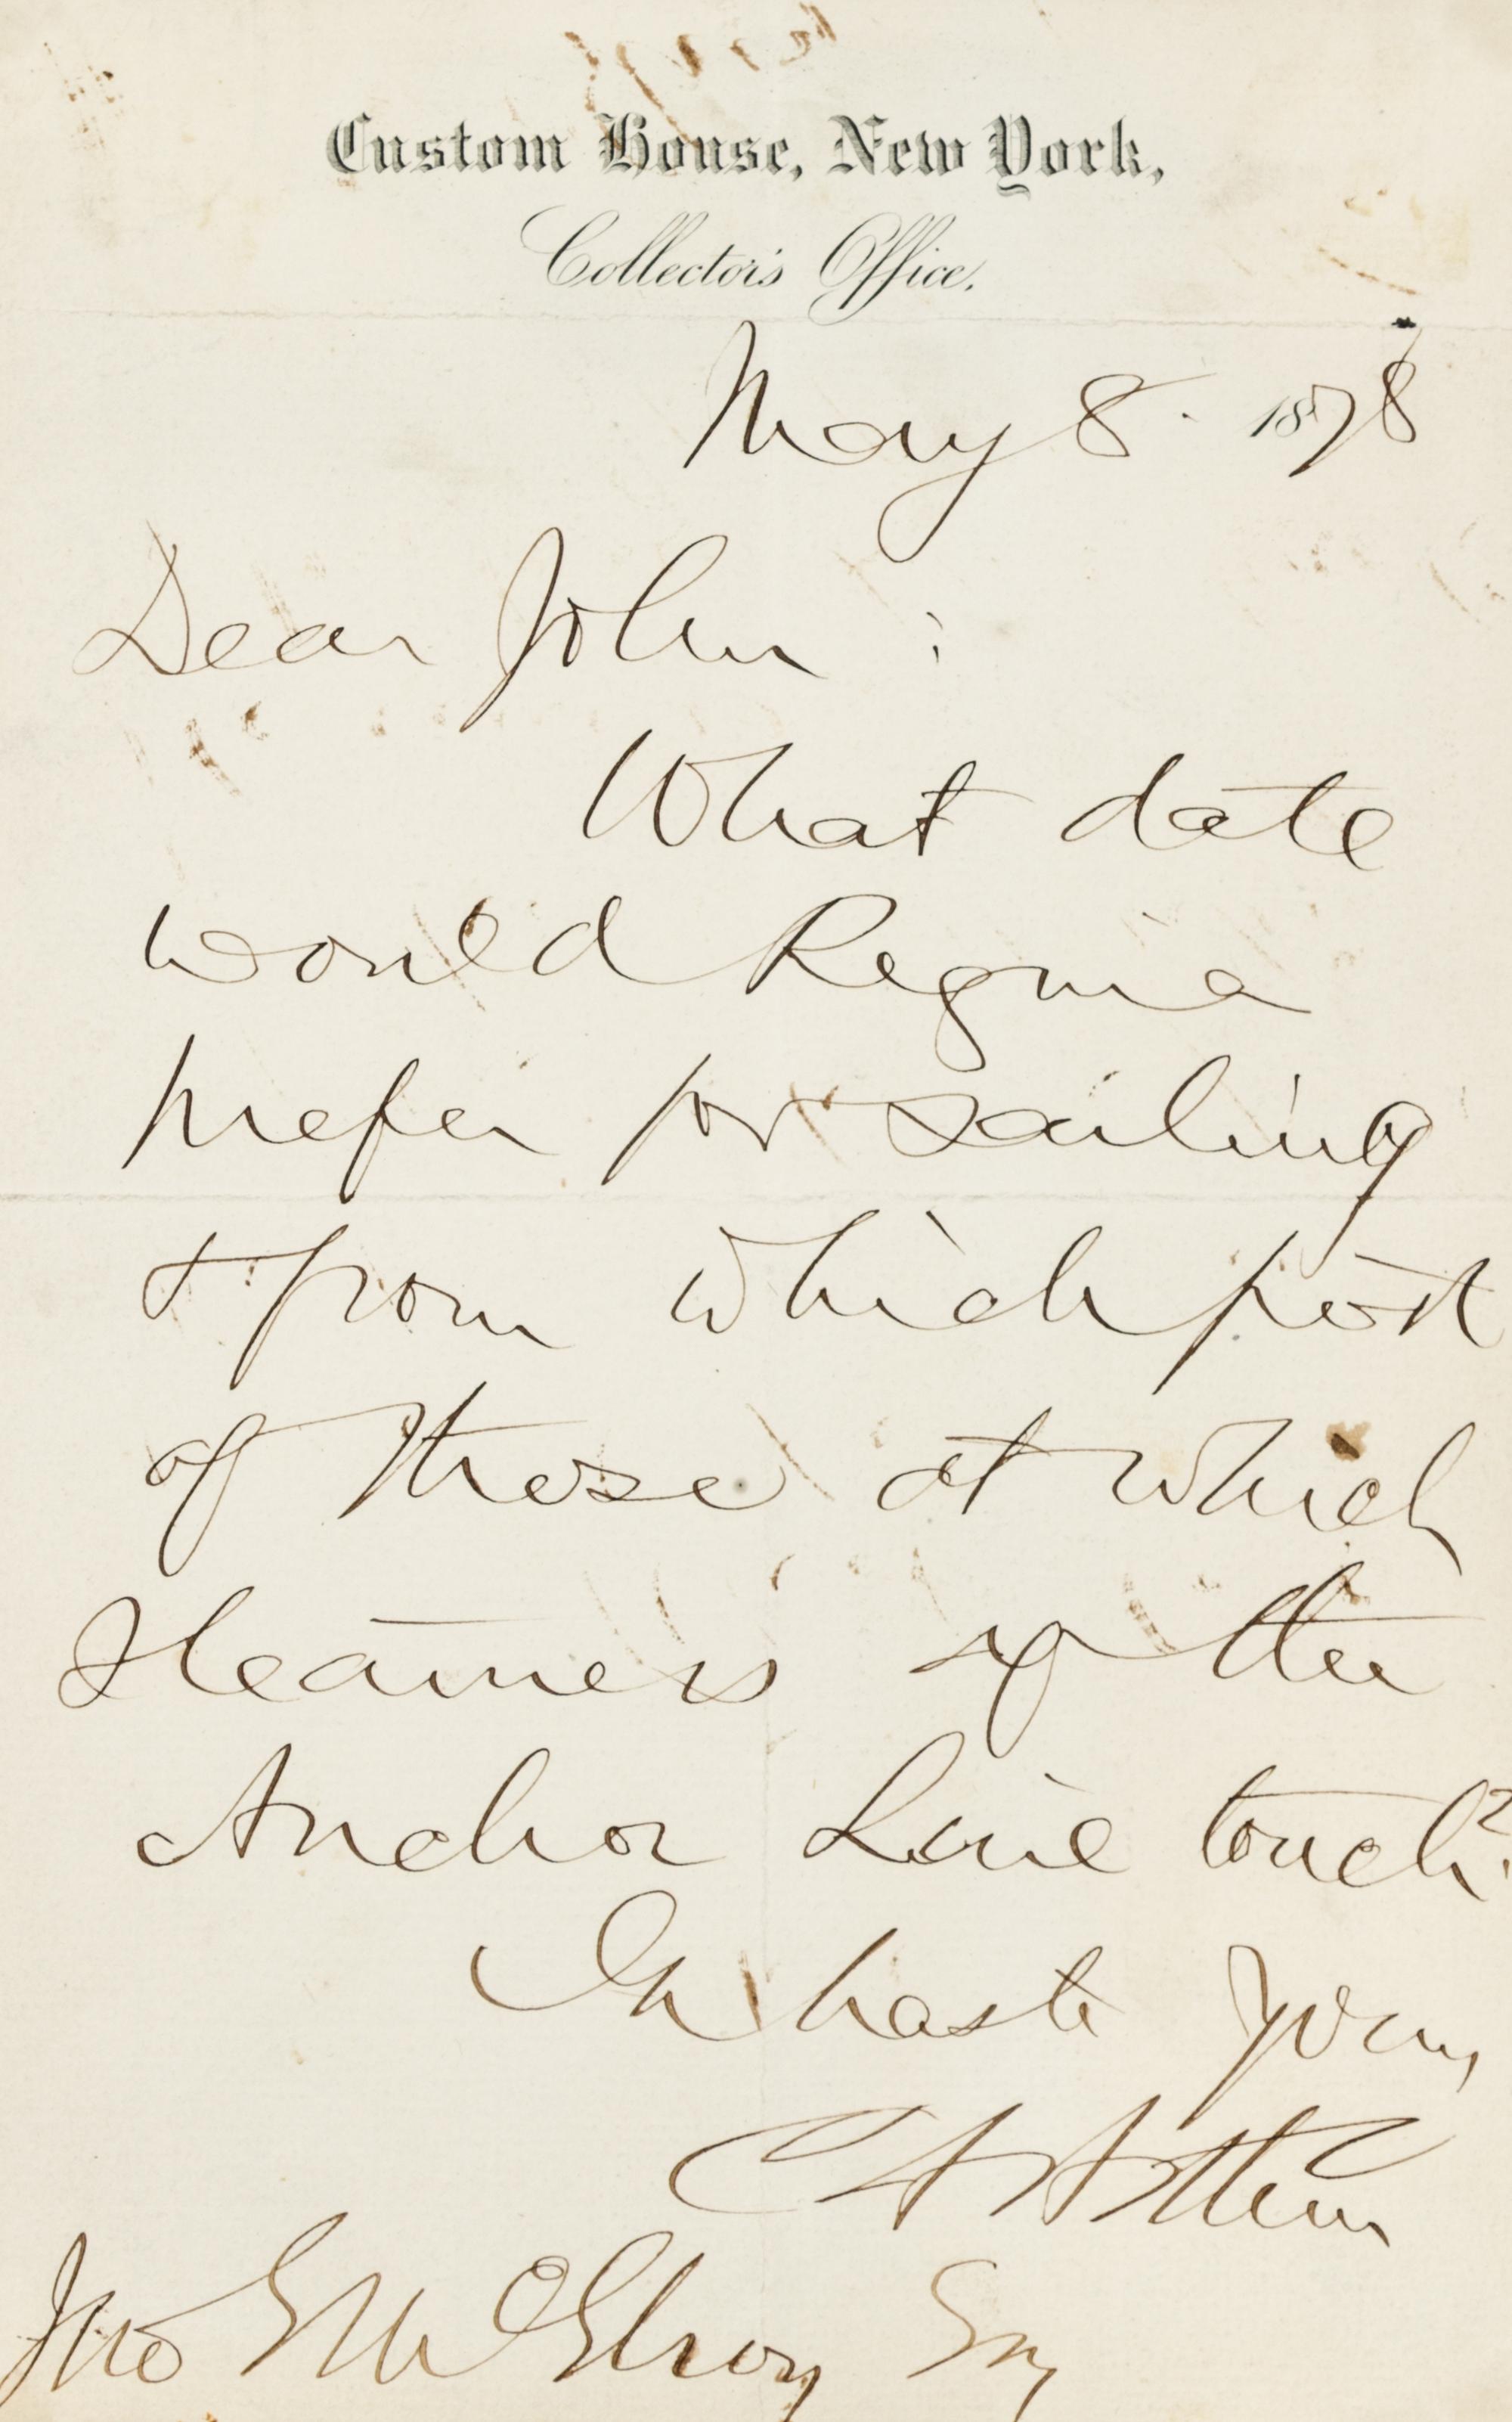 Custom House, New York,
Collector's Office.
May 8. 1878
Dear John :
What date
would Regina
prefer for sailing
& from which port
of those at which
Steamers of the
Anchor Line touch?
In haste Yours,
C A Arthur
Jno E McElroy Esq